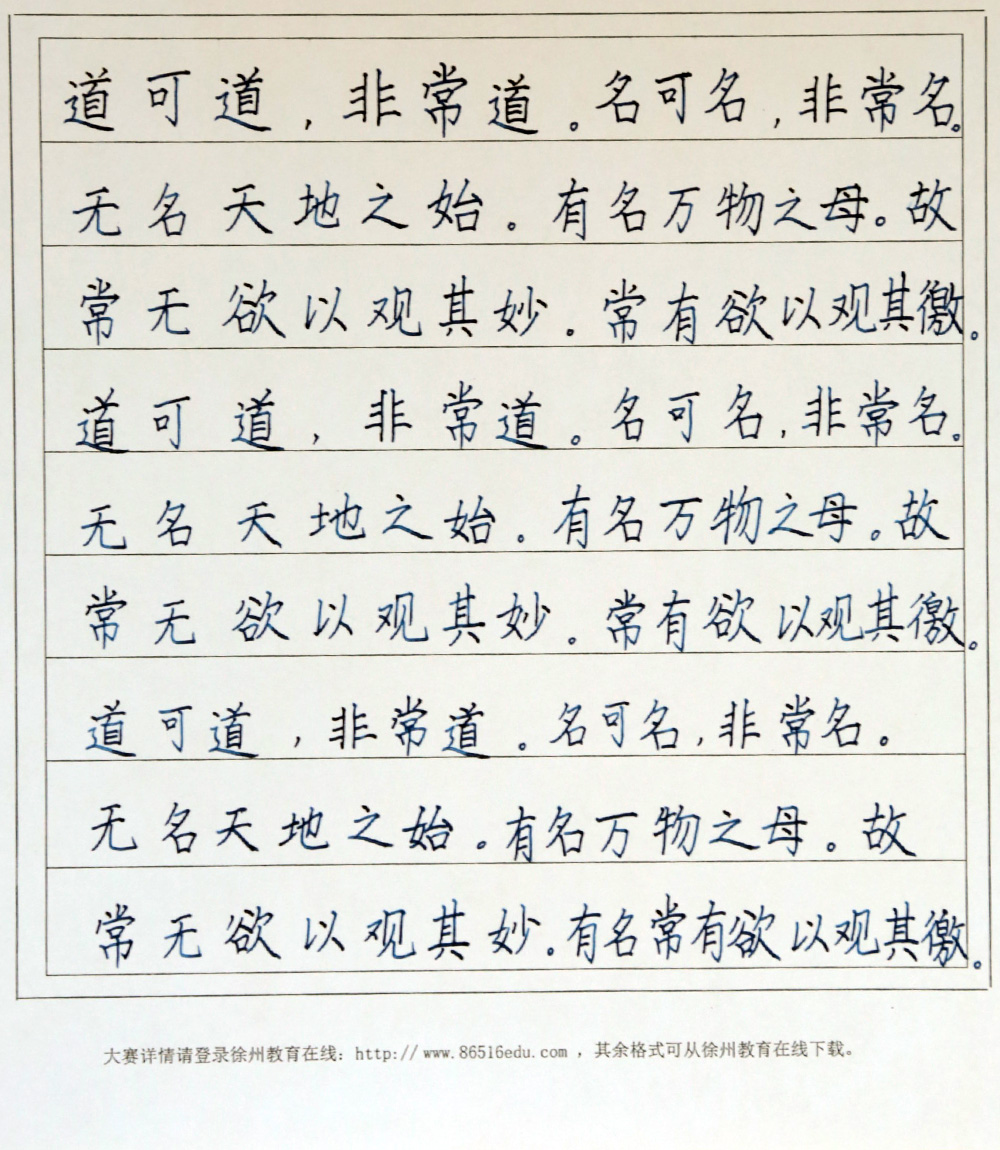 道可道，非常道。名可名，非常名。
无名天地之始。有名万物之母。故
常无欲以观其妙。常有欲以观其徼。
道可道，非常道。名可名，非常名。
无名天地之始。有名万物之母。故
常无欲以观其妙。常有欲以观其徼。
道可道，非常道。名可名，非常名。
无名天地之始。有名万物之母。故
常无欲以观其妙。有名常有欲以观其徼。
大赛详情请登录徐州教育在线：http://www.86516edu.com，其余格式可从徐州教育在线下载。